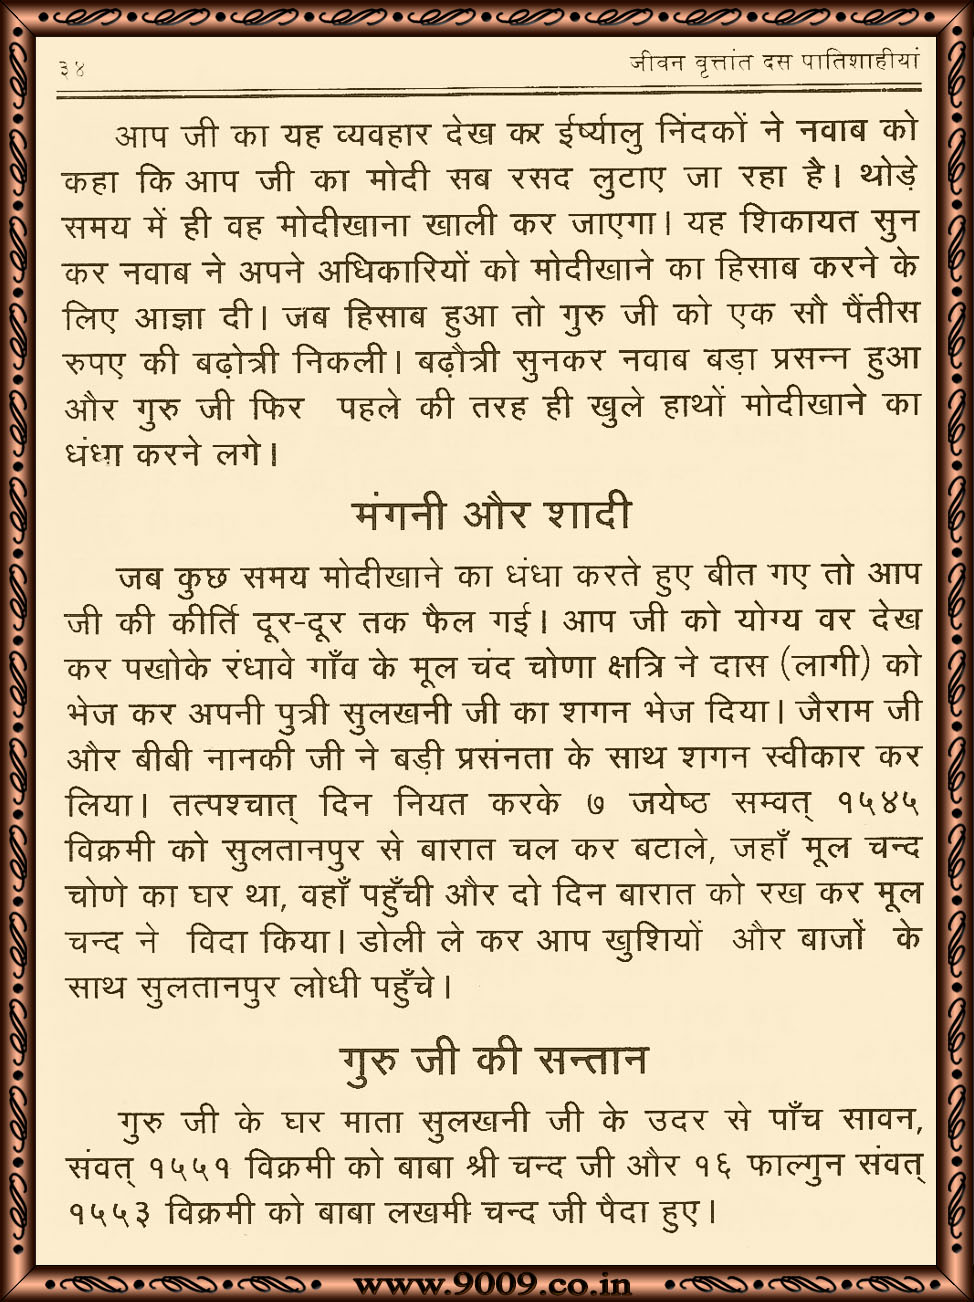 ३४ जीवन वृत्तांत दस पातिशाहीयां
आप जी का यह व्यवहार देख कर ईर्ष्यालु निंदकों ने नवाब को
कहा कि आप जी का मोदी सब रसद लुटाए जा रहा है। थोड़े
समय में ही वह मोदीखाना खाली कर जाएगा। यह शिकायत सुन
कर नवाब ने अपने अधिकारियों को मोदीखाने का हिसाब करने के
लिए आज्ञा दी। जब हिसाब हुआ तो गुरु जी को एक सौ पैंतीस
रुपए की बढ़ोत्री निकली। बढ़ौत्री सुनकर नवाब बड़ा प्रसन्न हुआ
और गुरु जी फिर पहले की तरह ही खुले हाथों मोदीखाने का
धंधा करने लगे।
मंगनी और शादी
जब कुछ समय मोदीखाने का धंधा करते हुए बीत गए तो आप
जी की कीर्ति दूर-दूर तक फैल गई। आप जी को योग्य वर देख
कर पखोके रंधावे गाँव के मूल चंद चोणा क्षत्रि ने दास (लागी) को
भेज कर अपनी पुत्री सुलखनी जी का शगन भेज दिया। जैराम जी
और बीबी नानकी जी ने बड़ी प्रसंनता के साथ शगन स्वीकार कर
लिया। तत्पश्चात् दिन नियत करके ७ जयेष्ठ सम्वत् १५४५
विक्रमी को सुलतानपुर से बारात चल कर बटाले, जहाँ मूल चन्द
चोणे का घर था, वहाँ पहुँची और दो दिन बारात को रख कर मूल
चन्द ने विदा किया। डोली ले कर आप खुशियों और बाजों के
साथ सुलतानपुर लोधी पहुँचे।
गुरु जी की सन्तान
गुरु जी के घर माता सुलखनी जी के उदर से पाँच सावन,
संवत् १५५१ विक्रमी को बाबा श्री चन्द जी और १६ फाल्गुन संवत्
१५५३ विक्रमी को बाबा लखमी चन्द जी पैदा हुए।
www.9009.co.in